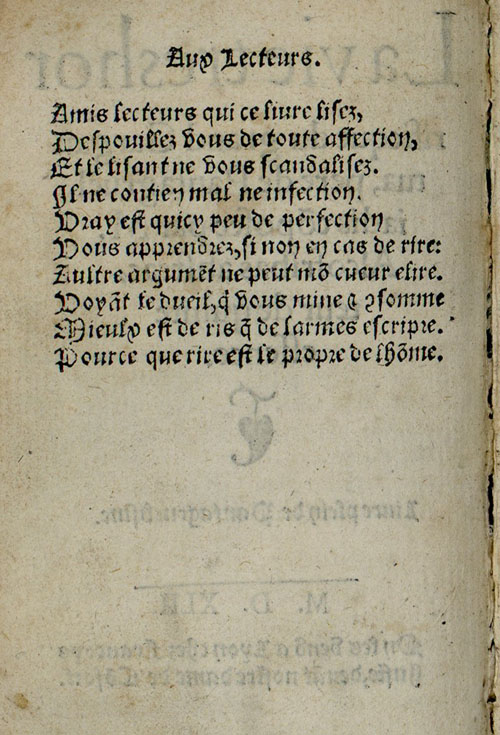 Aux Lecteurs.
Amis lecteurs qui ce liure lisez,
Despouillez vous de toute affection,
Et le lisant ne vous scandalisez.
Il ne contien mal ne infection.
Vray est quicy peu de perfection
Vous apprendrez, si non en cas de rire:
Aultre argumẽt ne peut mõ cueur elire.
Voyãt le dueil, q̃ vous mine & ꝯsomme
Mieulx est de ris q̃ de larmes escripre.
Pource que rire est le propre de lhõme.
M. D. XLII